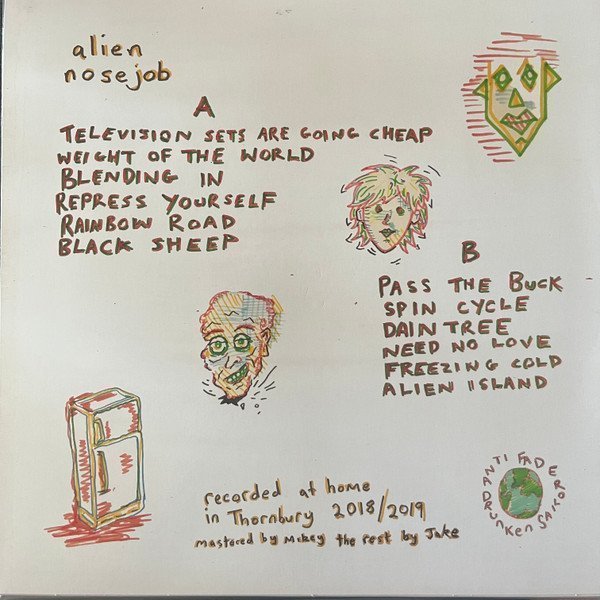 alien
nosejob
A
TELEVISION SETS ARE GOING CHEAP
WEIGHT OF THE WORLD
BLENDING IN
REPRESS YOURSELF
RAINBOW ROAD
BLACK SHEEP
B
PASS THE BUCK
SPIN CYCLE
DAINTREE
NEED NO LOVE
FREEZING COLD
ALIEN ISLAND
recorded at home
in Thornbury 2018/2019
mastered by Mikey the rest by Jake
ANTI FADE
DRUNKEN SAILOR